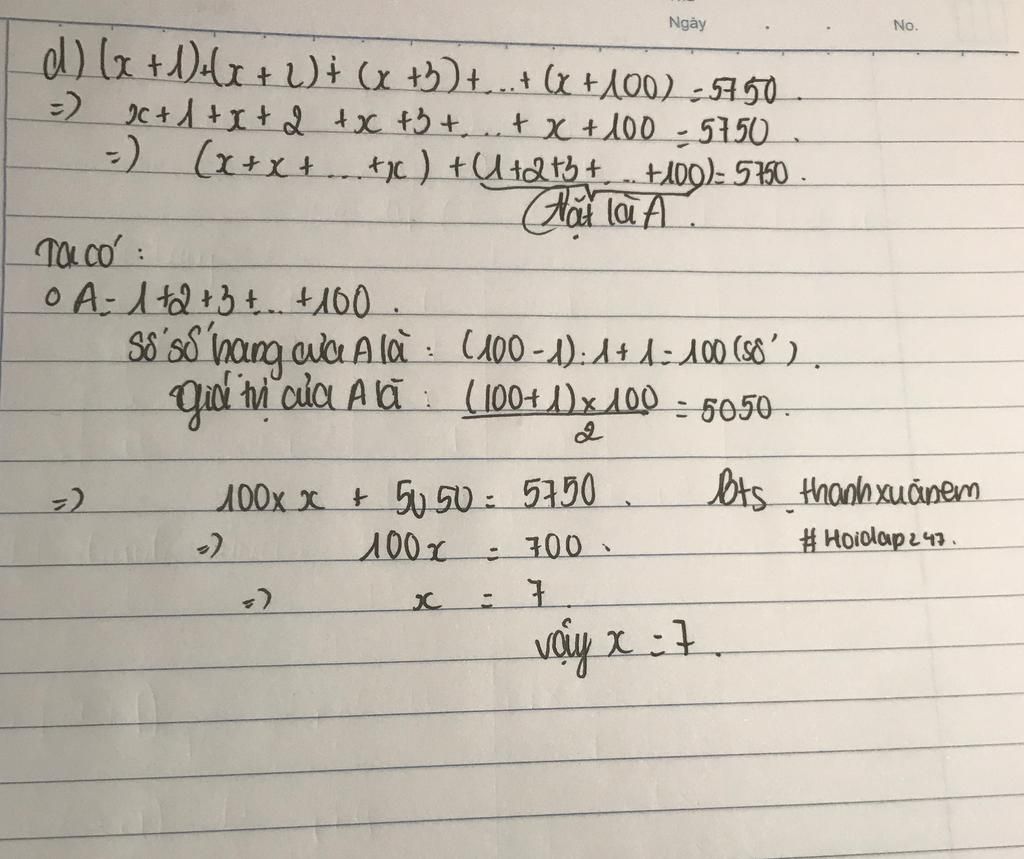 Ngày . . No.
d) (x+1)+(x+2)+(x+3)+...+(x+100) = 5750.
=) x+1+x+2+x+3+...+x+100 = 5750.
=) (x+x+...+x)+(1+2+3+...+100) = 5750.
Đặt là A.
Ta có :
o A = 1+2+3+...+100.
Số số hạng của A là : (100-1):1+1=100 (số).
giá trị của A là : (100+1)×100/2 = 5050.
=) 100×x + 5050 = 5750. Bts_thanhxuânem
=) 100x = 700. #Hoidap247.
=) x = 7.
vậy x = 7.